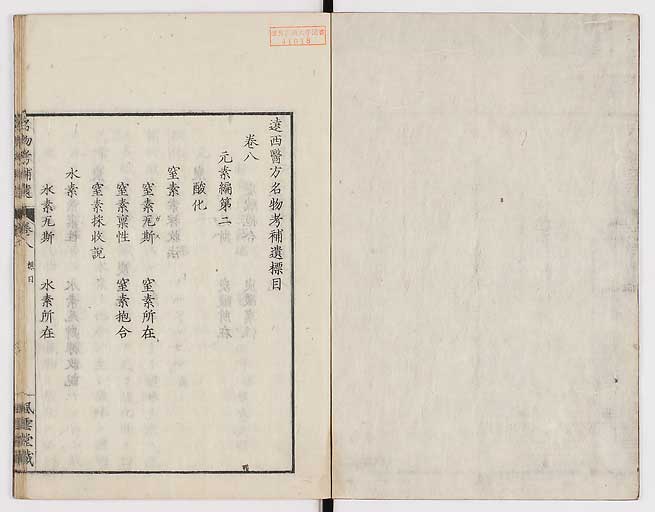 遠西醫方名物考補遺標目
卷八
元素編第二
酸化
窒素
窒素瓦斯 窒素所在
窒素稟性 窒素抱合
窒素採收說
水素
水素瓦斯 水素所在
名物考補遺
卷八
標目
風雲堂藏
41018